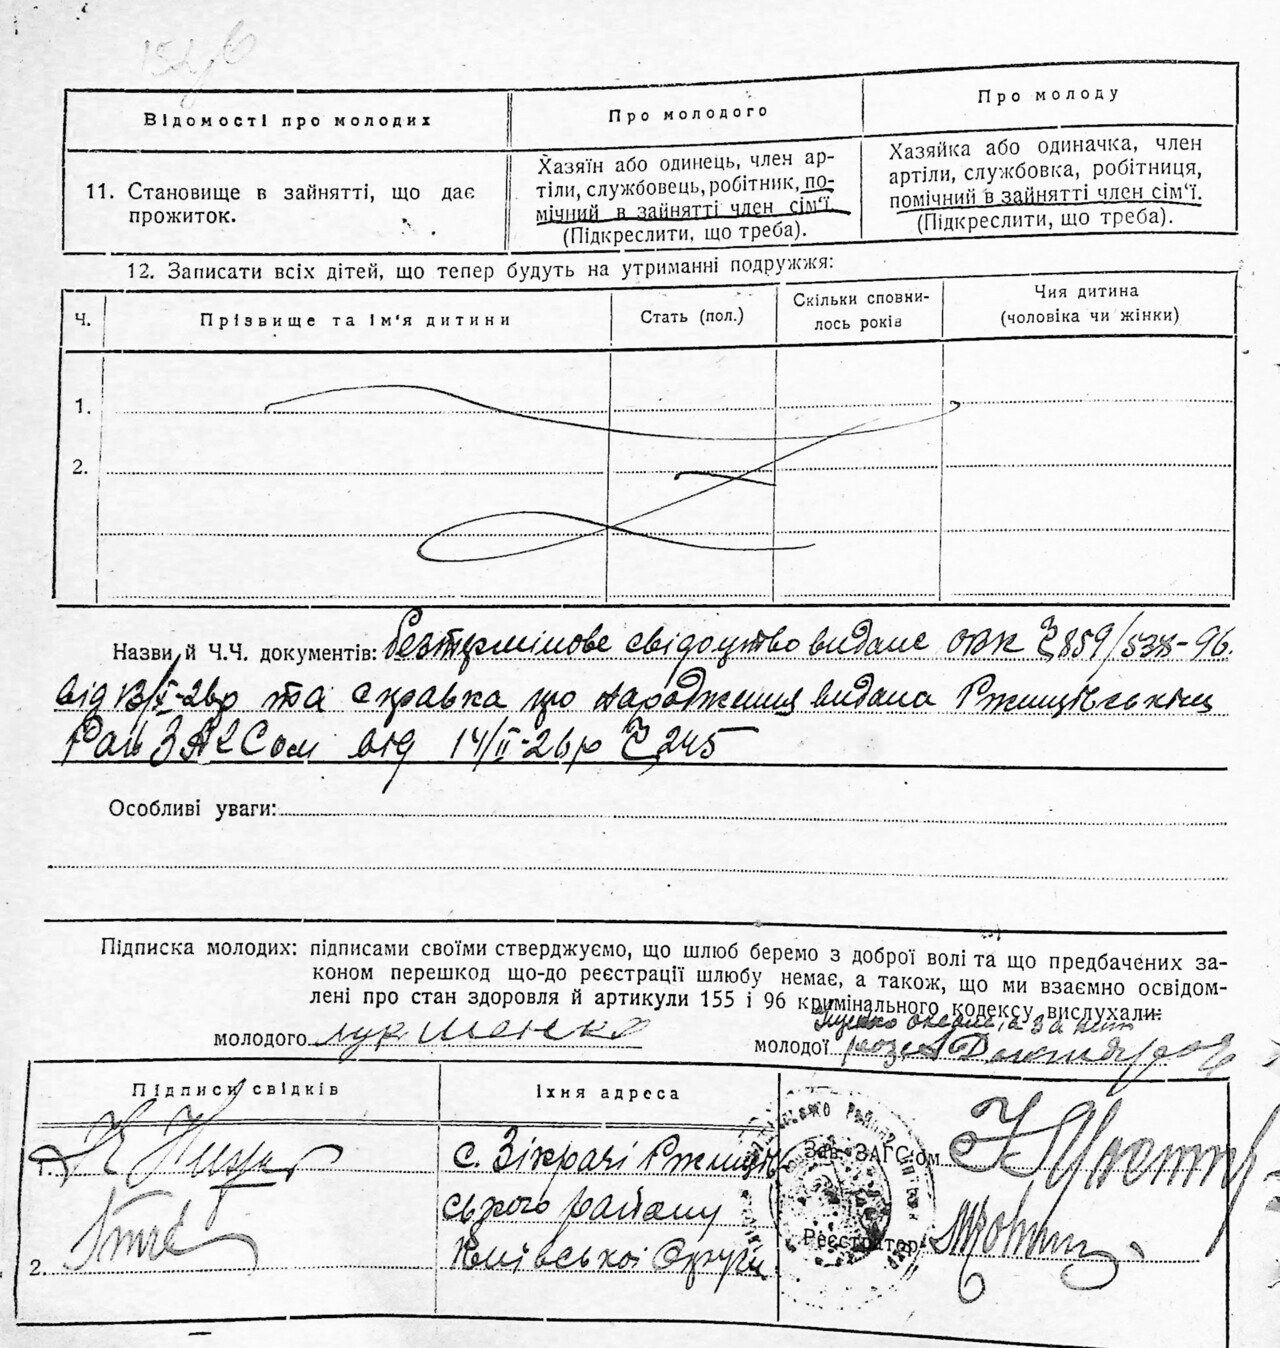 Відомості про молодих
Про молодого
Про молоду
11. Становище в зайнятті, що дає
прожиток.
Хазяїн або одинець, член ар-
тіли, службовець, робітник, по-
мічний в зайнятті член сім'ї.
(Підкреслити, що треба).
Хазяйка або одиначка, член
артіли, службовка, робітниця,
помічний в зайнятті член сім'ї.
(Підкреслити, що треба).
12. Записати всіх дітей, що тепер будуть на утриманні подружжя:
Ч.
Прізвище та ім'я дитини
Стать (пол.)
Скільки сповни-
лось років
Чия дитина
(чоловіка чи жінки)
1.
2.
Назви й Ч.Ч. документів: безтермінове свідоцтво видане ОВК Ч 859/538-96.
від 13/І-26р та справка про народження видана Ржищівським
Рай ЗАГСом від 14/ІІ-26р Ч 245
Особливі уваги:
Підписка молодих: підписами своїми стверджуємо, що шлюб беремо з доброї волі та що предбачених за-
коном перешкод що-до реєстрації шлюбу немає, а також, що ми взаємно освідом-
лені про стан здоровля й артикули 155 і 96 кримінального кодексу вислухали:
молодого
молодої
Підписи свідків
Їхня адреса
1.
с. Зікрачі Ржищів
ського району
Київської Округи
2.
Зав. ЗАГС'ом
Реєстратор